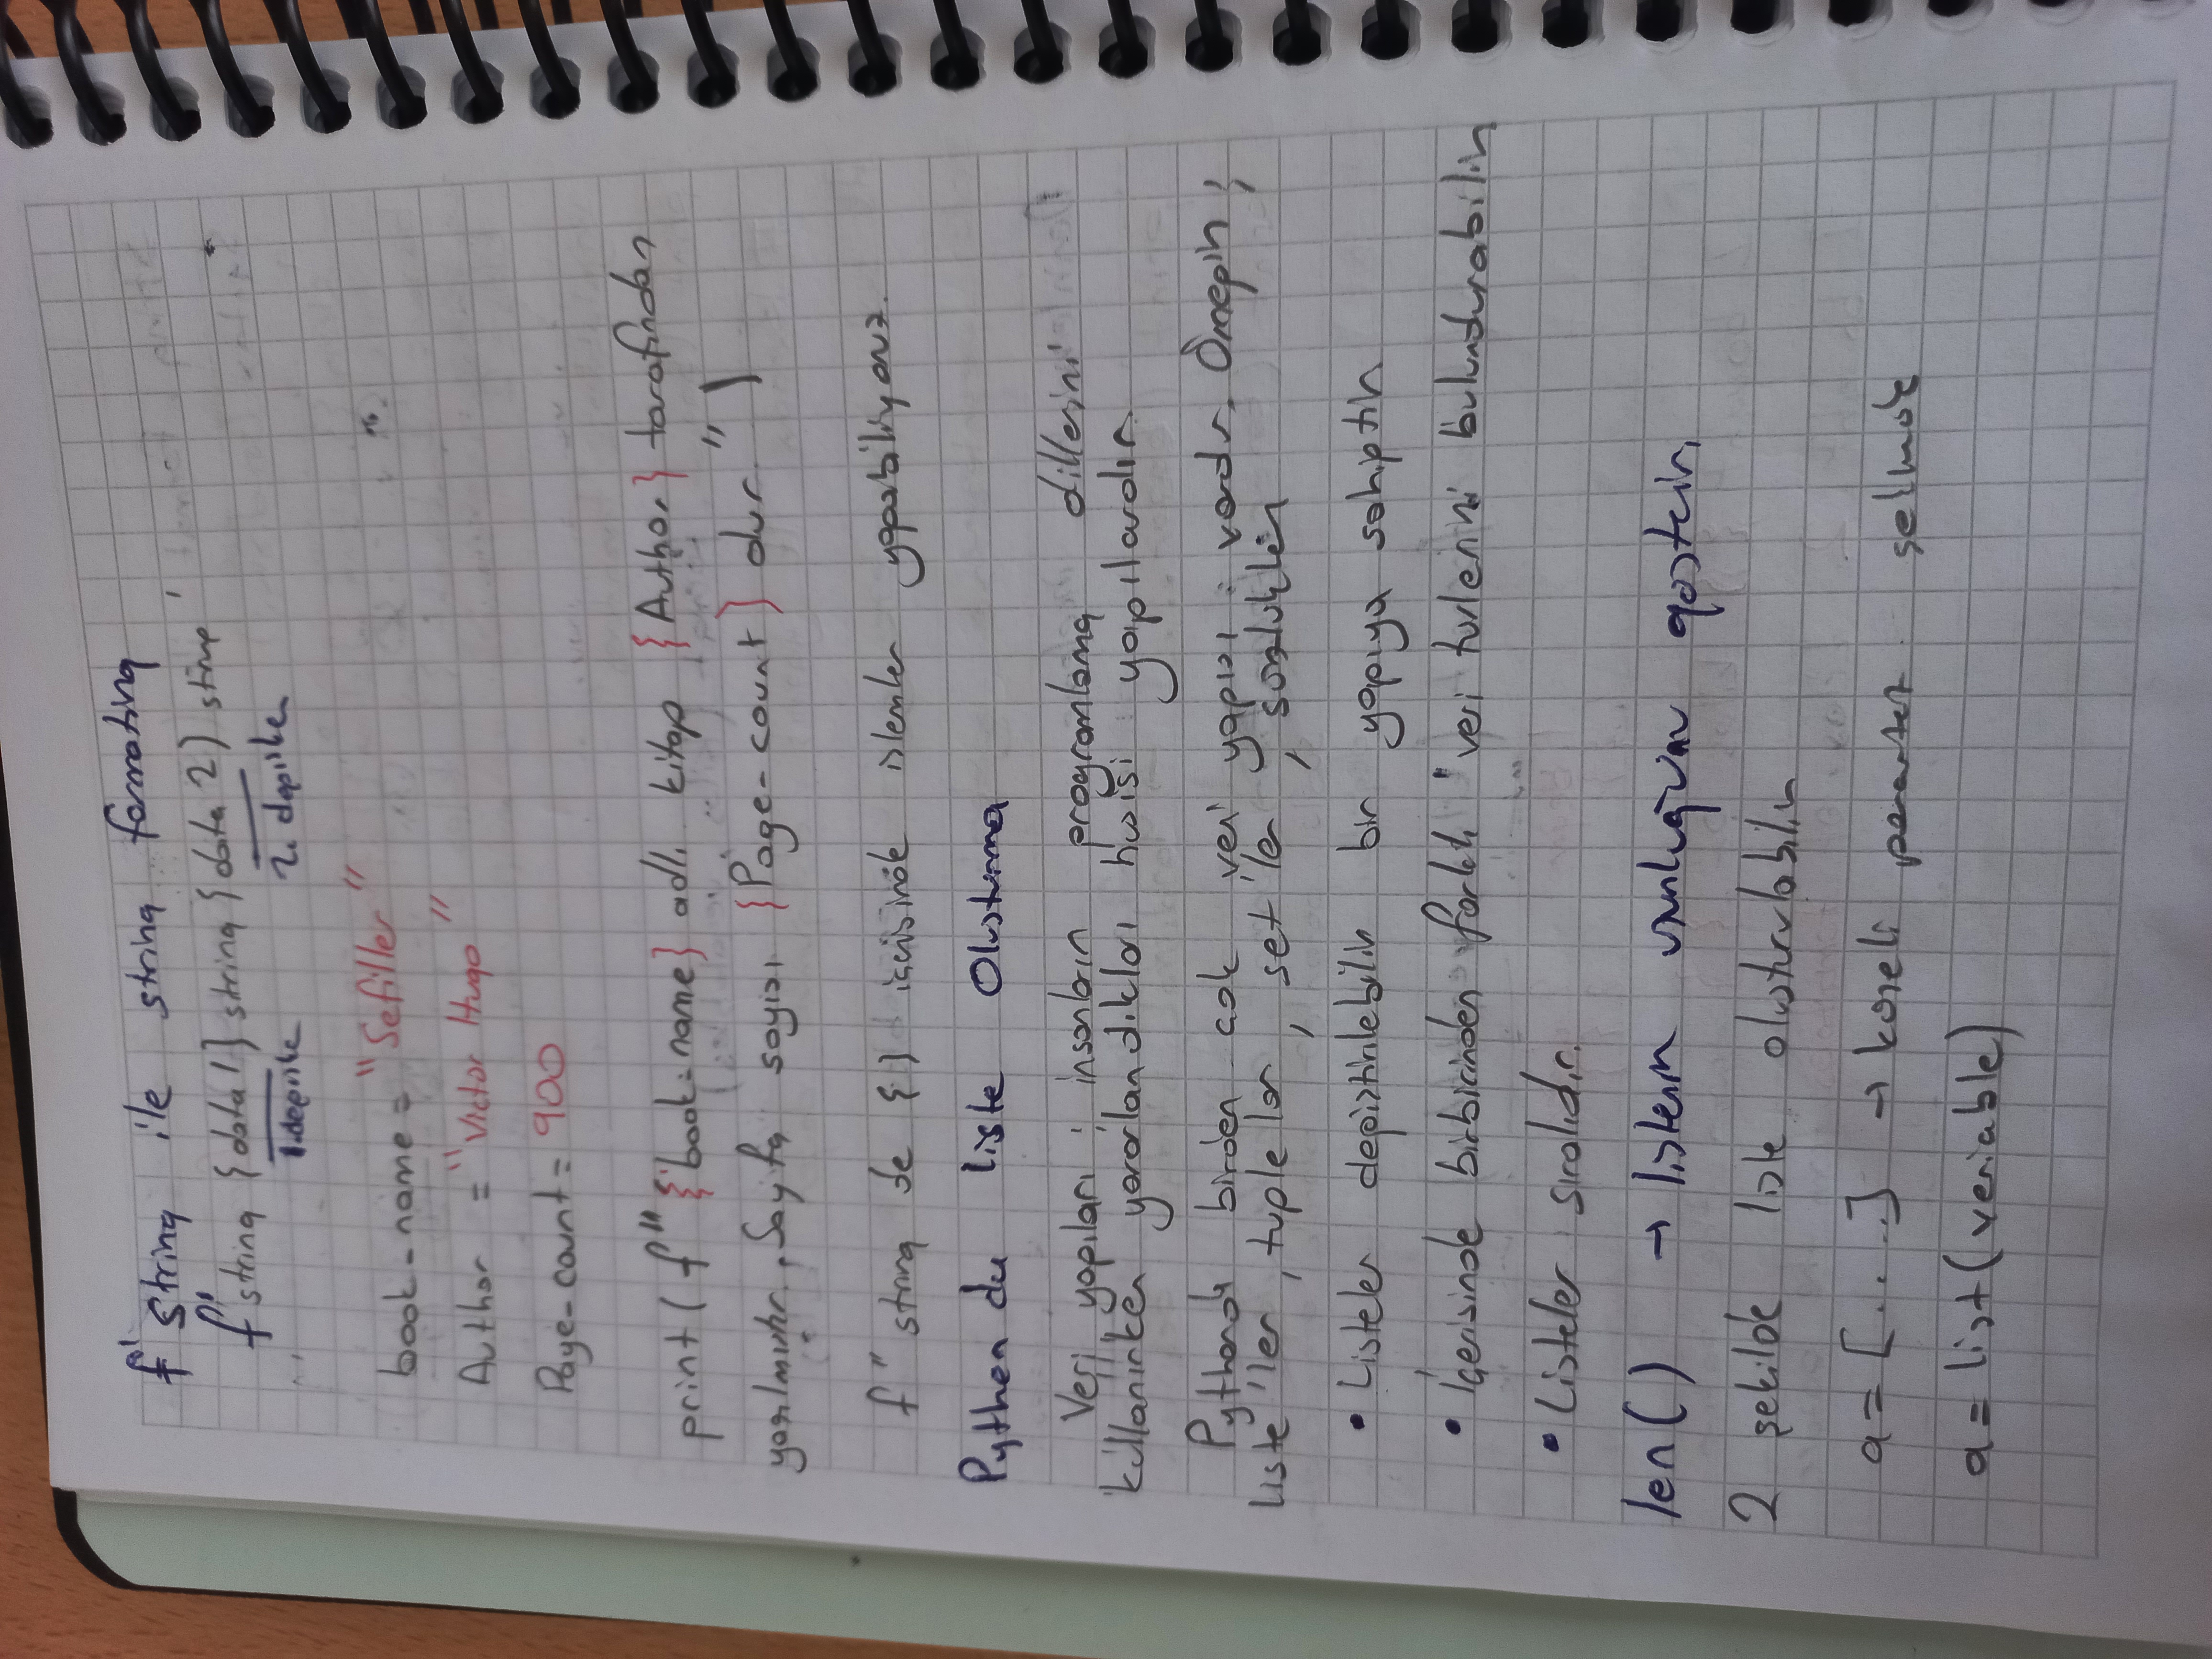 f' string ile string formating
f'string {data1} string {data 2} string'
1.değişke 2. değişken
book-name = "Sefiller"
Author = "Victor Hugo"
Page-count = 900
print(f"{book-name} adlı kitap {Author} tarafından
yazılmıştır. Sayfa sayısı {Page-count} dur.")
f" string de {} içerisinde islemler yapabiliyoruz.
Python da liste Olusturma
Veri yapıları ; insanların programlama dillerini
kullanırken yararlandıkları yapılardır.
Pythonda birden cok veri yapısı vardır. Örneğin ;
liste'ler, tuplelar, set'ler, sözlükler
• Listeler değiştirilebilir bir yapıya sahiptir
• İçerisinde birbirinden farklı veri turlerini bulundurabilir
• Listeler sıralıdır.
len() → listenin uzunluğunu gosterir.
2 şekilde liste olusturulabilir
a = [....] → koseli parantez
a = list(veriable)